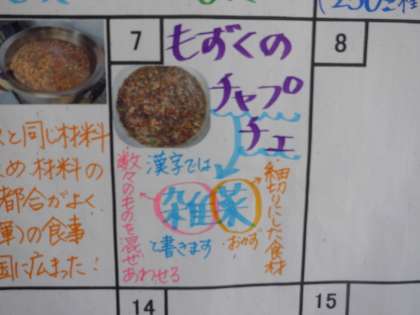 7
もずくの
チャプ
チェ
漢字では
雑菜
と書きます
数々のものを混ぜ
あわせる
おかず
細切りにした食材
8
と同じ材料
め材料の
都合がよく
の食事
に広まった!
14
15